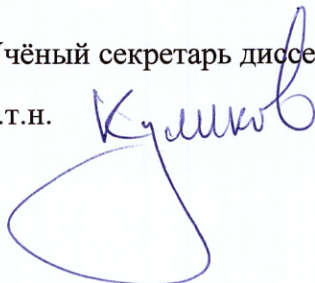 чёный секретарь диссе
.т.н. Куликов